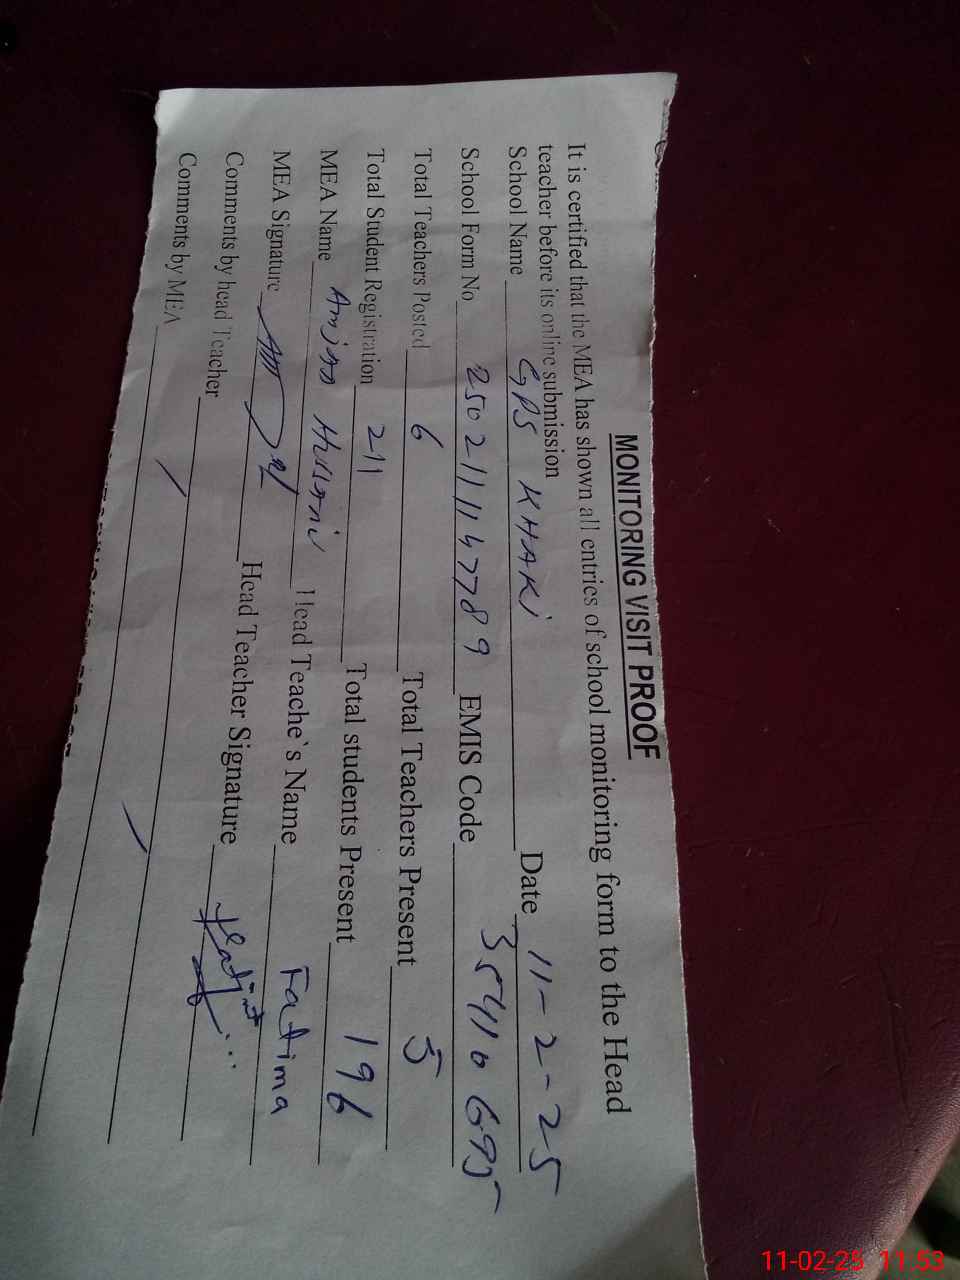 MONITORING VISIT PROOF
It is certified that the MEA has shown all entries of school monitoring form to the Head
teacher before its online submission
School Name GPS KHAKI Date 11-2-25
School Form No 25021111147789 EMIS Code 35410695
Total Teachers Posted 6 Total Teachers Present 5
Total Student Registration 211 Total students Present 196
MEA Name Amjad Hussain Head Teache`s Name Fatima
MEA Signature Head Teacher Signature
Comments by head Teacher
Comments by MEA
11-02-25 11:53